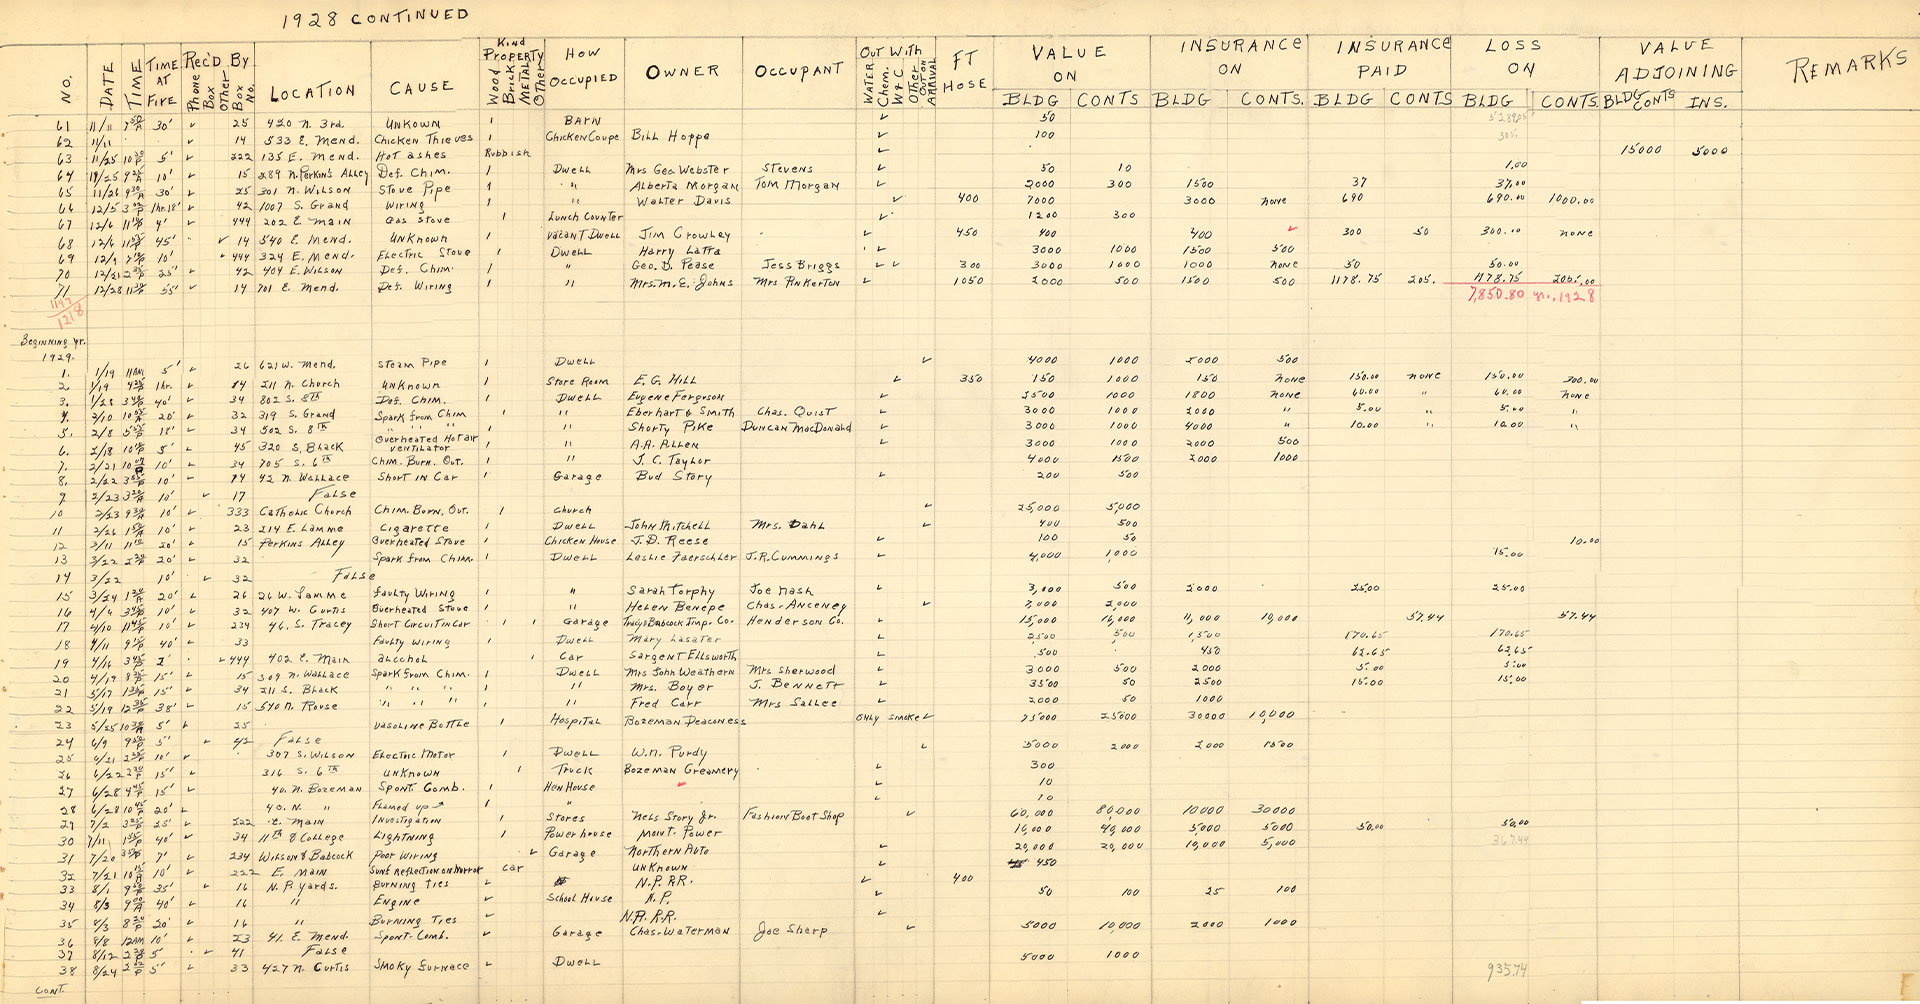 1928 CONTINUED
NO. DATE TIME TIME AT FIRE Rec'd By Phone Box Other Box No. LOCATION CAUSE Kind Property Wood Brick Metal Other HOW OCCUPIED OWNER OCCUPANT Out With WATER Chem. W & C Other Out on ARRIVAL FT HOSE VALUE ON BLDG CONTS INSURANCE ON BLDG CONTS. INSURANCE PAID BLDG CONTS LOSS ON BLDG CONTS. VALUE ADJOINING BLDG CONTS INS. REMARKS
61 11/11 7 50 A 30' ✓ 25 420 N. 3rd. UnKown 1 BARN ✓ 50
62 11/11 ✓ 14 533 E. Mend. Chicken Thieves 1 Chicken Coupe Bill Hoppe ✓ 100
63 11/25 5' ✓ 222 135 E. Mend. Hot ashes Rubbish ✓ 15000 5000
64 11/25 10' ✓ 15 289 N. Perkins Alley Def. Chim. 1 Dwell Mrs Geo. Webster Stevens ✓ 50 10 1.00
65 11/26 30' ✓ 25 301 N. Wilson Stove Pipe 1 " Alberta Morgan Tom Morgan ✓ 2000 300 1500 37 37.00
66 12/5 1hr.18' ✓ 42 1007 S. Grand Wiring 1 " Walter Davis ✓ 400 7000 3000 none 690 690.00 1000.00
67 12/6 4' ✓ 444 202 E. Main Gas Stove 1 Lunch Counter ✓ 1200 300
68 12/6 45' ✓ 14 540 E. Mend. UNKnown 1 Vacant Dwell Jim Crowley ✓ 450 400 400 ✓ 300 50 300.00 none
69 12/9 10' ✓ 444 324 E. Mend. Electric Stove 1 Dwell Harry Latta ✓ 3000 1000 1500 500
70 12/21 25' ✓ 42 404 E. Wilson Def. Chim. 1 " Geo. D. Pease Jess Briggs ✓ ✓ 300 3000 1000 1000 none 50 50.00
71 12/28 55' ✓ 14 701 E. Mend. Def. Wiring 1 " Mrs. M. E. Johns Mrs Pinkerton ✓ 1050 2000 500 1500 500 1178.75 205. 1178.75 205.00
1147
1218
7,850.80 yr. 1928
Beginning yr.
1929.
1. 1/19 11AM 5' ✓ 26 621 W. Mend. Steam Pipe 1 Dwell ✓ 4000 1000 2000 500
2. 1/19 1hr. ✓ 14 211 N. Church UNKnown 1 Store Room E. G. Hill ✓ 350 150 1000 150 none 150.00 none 150.00 300.00
3. 1/28 40' ✓ 34 802 S. 8th Def. Chim. 1 Dwell Eugene Ferguson 1000 1800 none 60.00 " 60.00 none
4. 2/10 20' ✓ 32 319 S. Grand Spark from Chim 1 " Eberhart & Smith Chas. Quist 3000 1000 2000 " 5.00 " 5.00 "
5. 2/8 18' ✓ 34 502 S. 8th " " " 1 " Shorty Pike Duncan MacDonald 3000 1000 4000 " 10.00 " 10.00 "
6. 2/18 5' ✓ 45 320 S. Black Overheated Hot air ventilator 1 " A. A. Allen 3000 1000 2000 500
7. 2/21 10' ✓ 34 705 S. 6th Chim. Burn. Out. 1 " J. C. Taylor 4000 1500 2000 1000
8. 2/22 10' ✓ 14 42 N. Wallace Short in Car 1 Garage Bud Story ✓ 200 500
9 2/23 10' ✓ 17 False
10 2/23 10' ✓ 333 Catholic Church Chim. Burn. Out. 1 Church ✓ 25,000 5,000
11 2/26 10' ✓ 23 214 E. Lamme Cigarette 1 Dwell John Mitchell Mrs. Dahl ✓ 400 500
12 3/11 20' ✓ 15 Perkins Alley Overheated Stove 1 Chicken House J. D. Reese ✓ 100 50 10.00
13 3/22 20' ✓ 32 Spark from Chim. 1 Dwell Leslie Faerschler J. R. Cummings ✓ 4,000 1000 15.00
14 3/22 10' ✓ 32 False
15 3/24 20' ✓ 26 26 W. Lamme Faulty Wiring 1 " Sarah Torphy Joe Nash ✓ 3,000 500 2000 25.00 25.00
16 4/4 10' ✓ 32 407 W. Curtis Overheated Stove 1 " Helen Benepe Chas. Anceney ✓ 7,000 2,000
17 4/10 10' ✓ 234 46. S. Tracey Short Circuit in Car 1 1 Garage Tracy & Babcock Imp. Co. Henderson Co. ✓ 15,000 16,000 11,000 10,000 57.44 57.44
18 4/11 40' ✓ 33 Faulty Wiring 1 Dwell Mary Lasater ✓ 2500 500 1,500 170.65 170.65
19 4/16 2' ✓ 444 402 E. Main alcohol 1 Car Sargent Ellsworth ✓ 500 450 62.65 62.65
20 4/19 15' ✓ 15 509 N. Wallace Spark from Chim. 1 Dwell Mrs John Weathern Mrs Sherwood ✓ 3000 500 2000 5.00 5.00
21 5/17 15' ✓ 34 211 S. Black " " " " 1 " Mrs. Boyer J. Bennett ✓ 3500 50 2500 15.00 15.00
22 5/19 38' ✓ 15 540 N. Rouse " " " " 1 " Fred Carr Mrs Sallee ✓ 2000 50 1000
23 5/25 5' ✓ 25 Vasoline Bottle 1 Hospital Bozeman Deaconess Only smoke ✓ 75000 25000 30000 10,000
24 6/9 5" ✓ 42 False
25 6/21 10' ✓ 307 S. Wilson Electric Motor 1 Dwell W. M. Purdy ✓ 5000 2000 2000 1500
26 6/22 15" ✓ 316 S. 6th UNKnown 1 Truck Bozeman Creamery ✓ 300
27 6/28 15' ✓ 40. N. Bozeman Spont. Comb. 1 Hen House ✓ 10
28 6/28 20' ✓ 40. N. " Flamed up 1 " ✓ 10
29 7/2 25' ✓ 222 E. Main Investigation 1 Stores Nels Story Jr. Fashion Boot Shop ✓ 60,000 80,000 10000 30000
30 7/11 40' ✓ 34 11th & College Lightning 1 Powerhouse Mont. Power ✓ 10,000 40,000 5000 5000 50.00 50.00
31 7/20 7' ✓ 234 Wilson & Babcock Poor Wiring ✓ Garage Northern Auto ✓ 20,000 20,000 10,000 5,000 367.44
32 7/21 10' ✓ 222 E. Main Suns Reflection on Mirror car UNKnown ✓ 450
33 8/1 35' ✓ 16 N. P. Yards. Burning Ties ✓ N. P. RR. ✓ 400
34 8/3 40' ✓ 16 " Engine ✓ School House N. P. ✓ 50 100 25 100
35 8/3 20' ✓ 16 " Burning Ties ✓ N.P. R.R. ✓
36 8/8 12AM 10' ✓ 23 41. E. Mend. Spont-Comb. ✓ Garage Chas. Waterman Joe Sharp ✓ 5000 10,000 2000 1000
37 8/12 5' ✓ 41 False
38 8/24 5" ✓ 33 427 N. Curtis Smoky furnace ✓ Dwell 5000 1000 935.74
CONT.